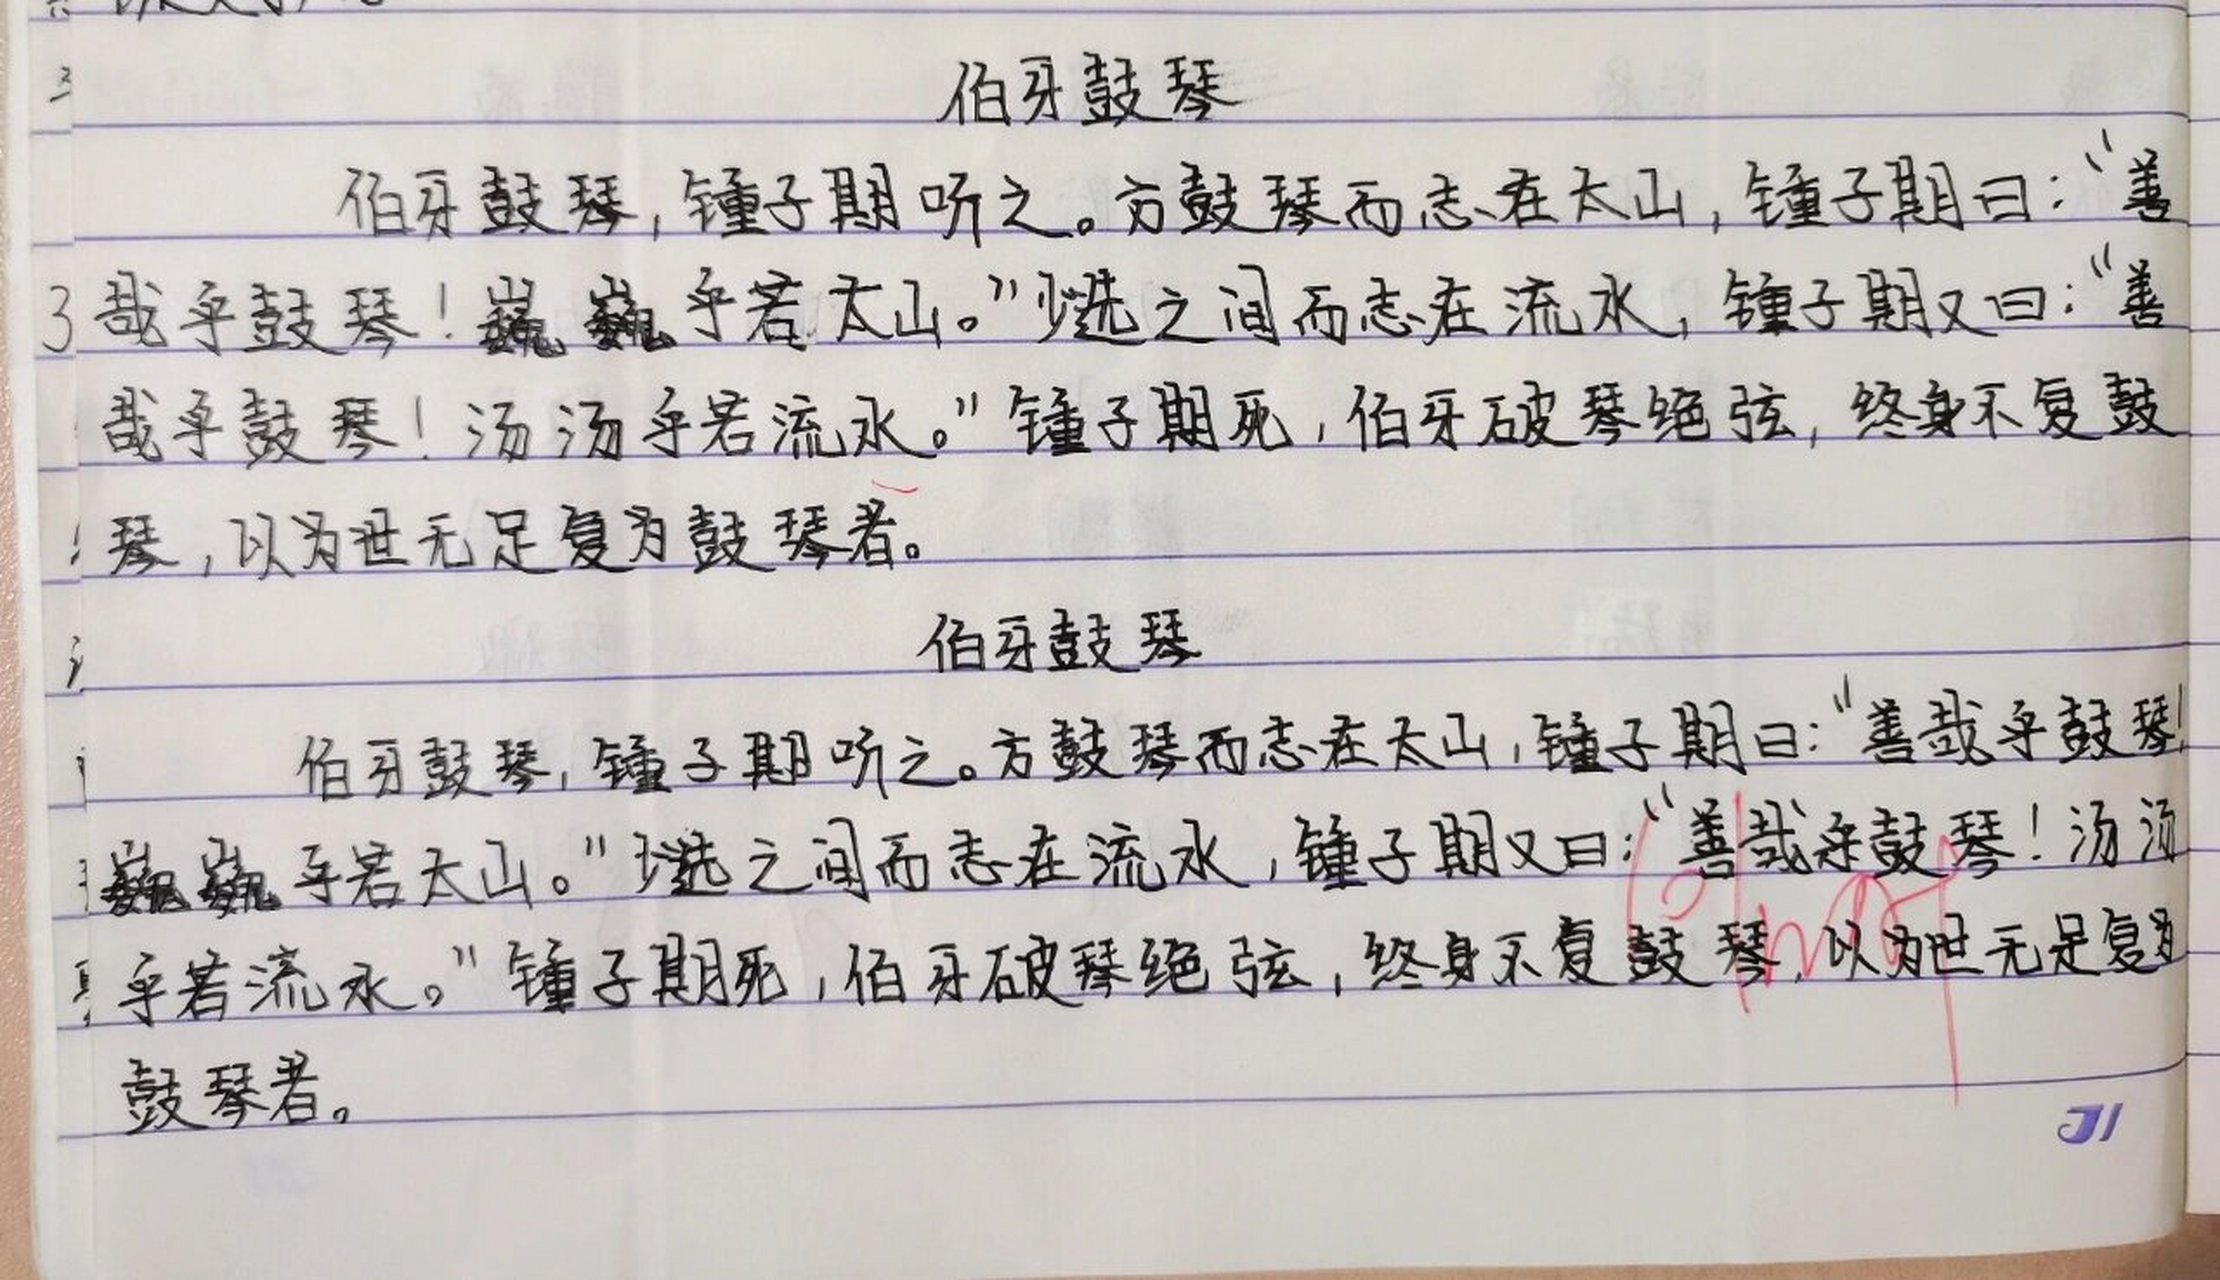 伯牙鼓琴
伯牙鼓琴，锺子期听之。方鼓琴而志在太山，锺子期曰：“善
哉乎鼓琴！巍巍乎若太山。”少选之间而志在流水，锺子期又曰：“善
哉乎鼓琴！汤汤乎若流水。”锺子期死，伯牙破琴绝弦，终身不复鼓
琴，以为世无足复为鼓琴者。
伯牙鼓琴
伯牙鼓琴，锺子期听之。方鼓琴而志在太山，锺子期曰：“善哉乎鼓琴！
巍巍乎若太山。”少选之间而志在流水，锺子期又曰：“善哉乎鼓琴！汤汤
乎若流水。”锺子期死，伯牙破琴绝弦，终身不复鼓琴，以为世无足复为
鼓琴者。